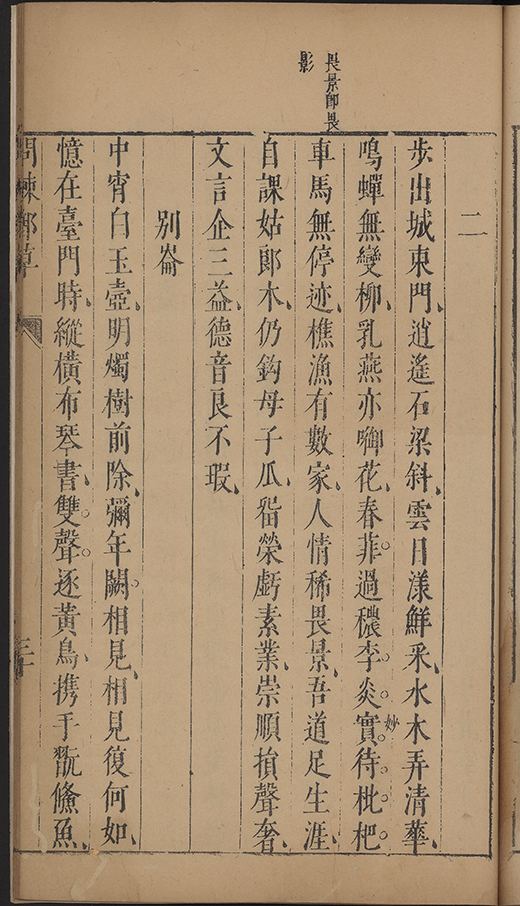 畏景卽畏
影
二
步出城東門逍遙石梁斜雲日漾鮮采水木弄清華
鳴蟬無變柳乳燕亦啣花春菲過穠李炎實待枇杷
妙
車馬無停迹樵漁有數家人情稀畏景吾道足生涯
自課姑郎木仍鈎母子瓜畱榮虧素業崇順損聲奢
文言企三益德音良不瑕
別崙
中宵白玉壺明燭樹前除彌年闕相見相見復何如
憶在臺門時縱橫布琴書雙聲逐黃鳥携手翫鯈魚
草
三十